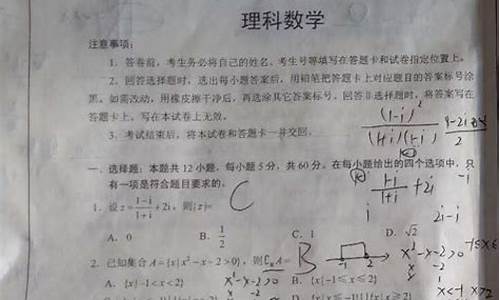 理科数学
注意事项：
1. 答卷前，考生务必将自己的姓名、考生号等填写在答题卡和试卷指定位置上。
2. 回答选择题时，选出每小题答案后，用铅笔把答题卡上对应题目的答案标号涂
黑。如需改动，用橡皮擦干净后，再选涂其它答案标号。回答非选择题时，将答案写在
答题卡上。写在本试卷上无效。
3. 考试结束后，将本试卷和答题卡一并交回。
(1-i)²
(1+i)(1-i)
2
一、选择题：本题共 12 小题，每小题 5 分，共 60 分。在每小题给出的四个选项中，只
有一项是符合题目要求的。
1-i/1+i +2i
-i
1. 设 z=1-i/1+i+2i，则|z|= C
i 2i-i
A. 0 B. 1/2 C. 1 D. √2
2. 已知集合 A={x|x²-x-2>0}，则∁RA= B
-1 2
x²-x-2>0
A. {x|-1<x<2} B. {x|-1≤x≤2}
x²-x-2>0
x -2
x 1
x<-1 x>2